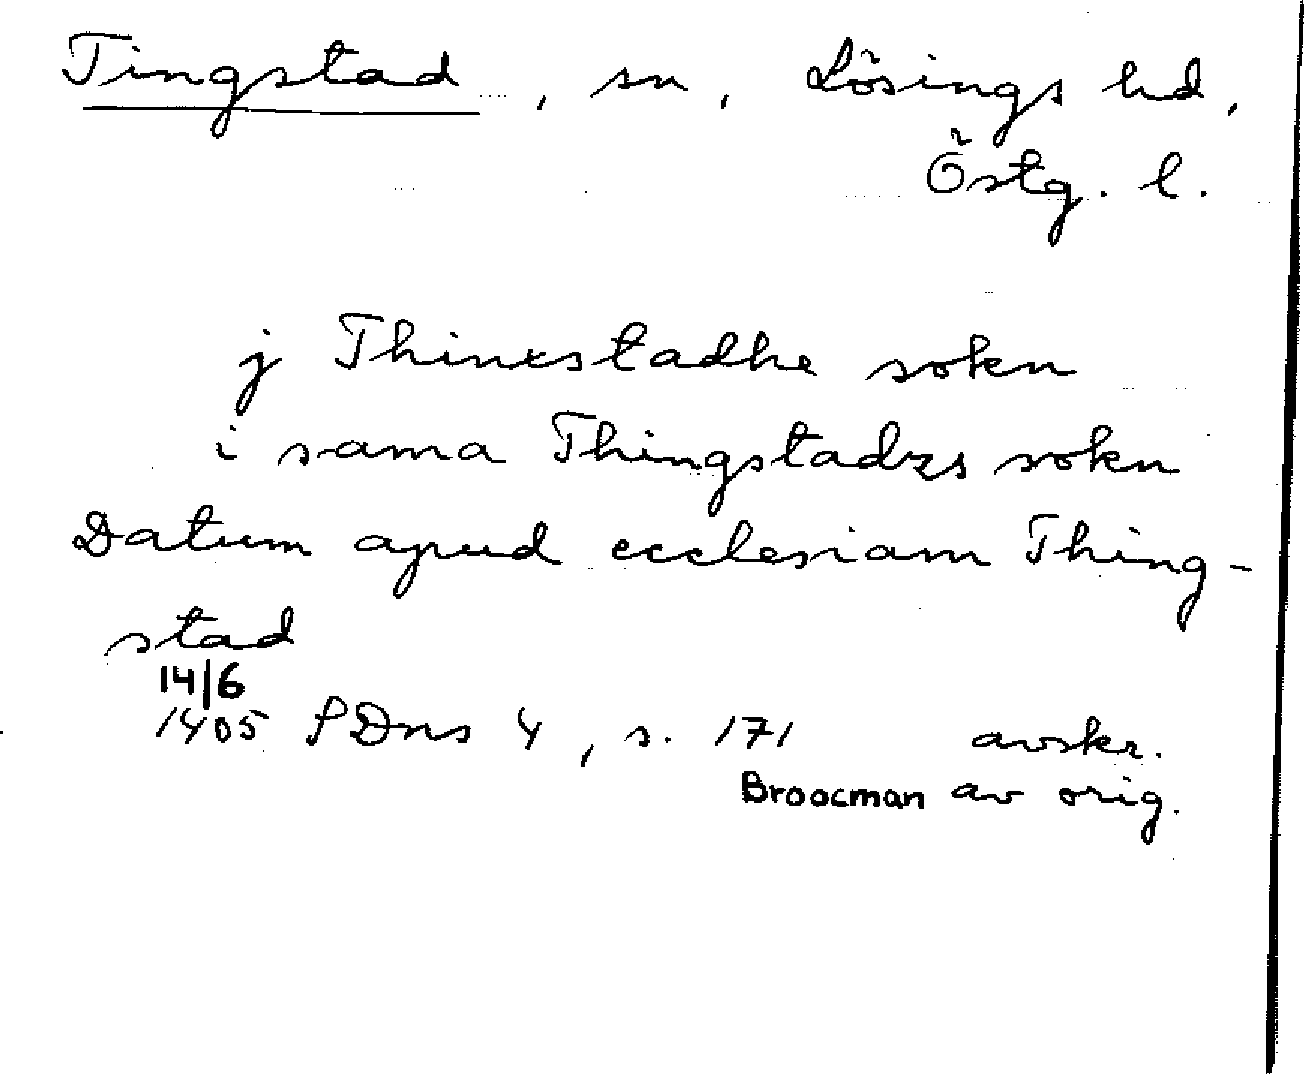 Tingstad, sn, Lösings hd,
Östg. l.
j Thinxstadhe sokn
i sama Thingstadzs sokn
Datum apud ecclesiam Thing-
stad
14/6
1405 SDns 4, s. 171 avskr.
Broocman av orig.